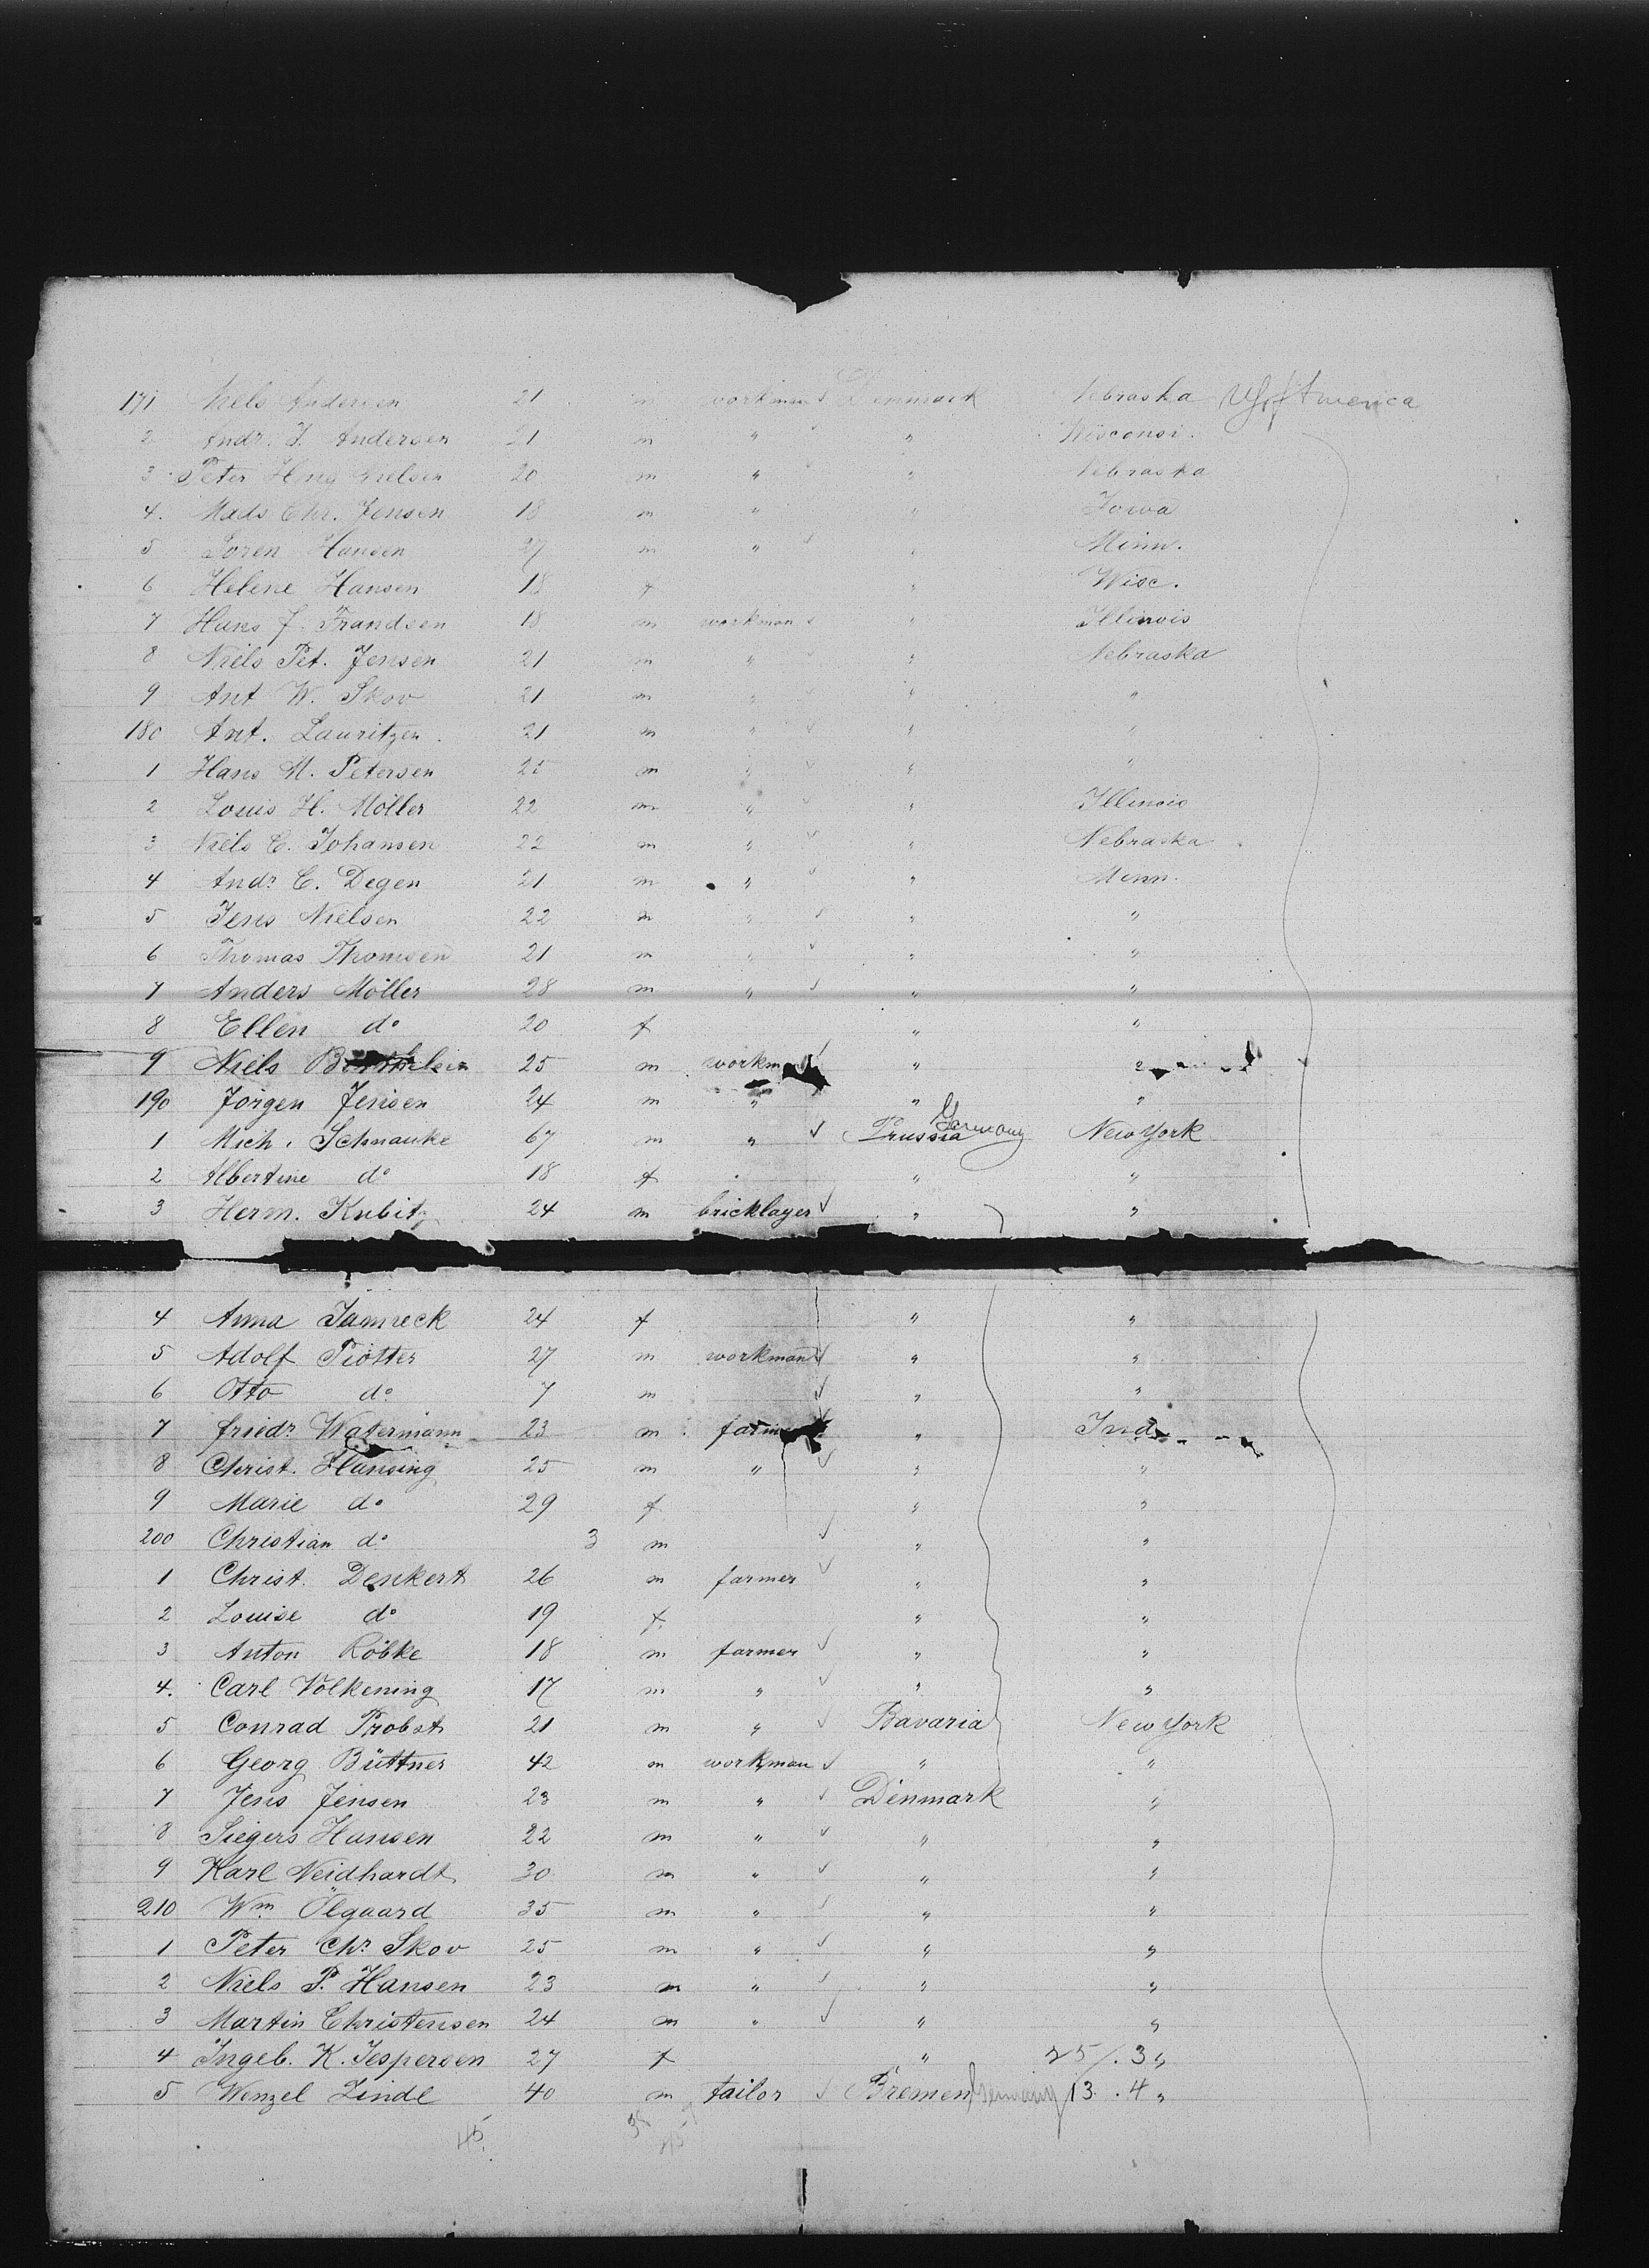 171 Niels Andersen 21 m workman ✓ Denmark Nebraska US of America
2 Andr. J. Andersen 21 m " ✓ " Wisconsi.
3 Peter Hng nielsen 20 m " " Nebraska
4. Mads Chr. Jensen 18 m " " Iowa
5 Soren Hansen 27 m " ✓ " Minn.
6 Helene Hansen 18 f " Wisc.
7 Hans J. Frandsen 18 m workman ✓ " Illinois
8 Niels Pet. Jensen 21 m " ✓ " Nebraska
9 Ant W. Skov 21 m " ✓ " "
180 Ant. Lauritzen 21 m " ✓ " "
1 Hans M. Petersen 25 m " ✓ " "
2 Louis H. Möller 22 m " ✓ " Illinois
3 Niels C. Johansen 22 m " ✓ " Nebraska
4 Andr. C. Degen 21 m " ✓ " Minn.
5 Jens Nielsen 22 m " ✓ " "
6 Thomas Thomsen 21 m " ✓ " "
7 Anders Möller 28 m " ✓ " "
8 Ellen do 20 f " "
9 Niels 25 m workm " "
190 Jörgen Jensen 24 m " " "
1 Mich. Schnauke 67 m " ✓ Prussia Germany New York
2 Albertine do 18 f " "
3 Herm. Kubitz 24 m bricklayer ✓ " "
4 Anna Jamreck 24 f " "
5 Adolf Piotter 27 m workman ✓ " "
6 Otto do 7 m ✓ " "
7 friedr. Watermann 23 m farm " Ind.
8 Christ. Hansing 25 m " ✓ " "
9 Marie do 29 f " "
200 Christian do 3 m ✓ " "
1 Christ. Denkert 26 m farmer ✓ " "
2 Louise do 19 f " "
3 Anton Röbke 18 m farmer ✓ " "
4. Carl Volkening 17 m " ✓ " "
5 Conrad Probst 21 m " ✓ Bavaria New York
6 Georg Büttner 42 m workman ✓ " "
7 Jens Jensen 23 m " ✓ Denmark "
8 Siegers Hansen 22 m " ✓ " "
9 Karl Neidhardt 30 m " ✓ " "
210 Wm. Ölgaard 35 m " ✓ " "
1 Peter Chr. Skov 25 m " ✓ " "
2 Niels P. Hansen 23 m " ✓ " "
3 Martin Christensen 24 m " ✓ " "
4 Ingeb. K. Jespersen 27 f " 25/. 3 "
5 Wenzel Zindl 40 m tailor ✓ Bremen Germany 13 . 4 "
45